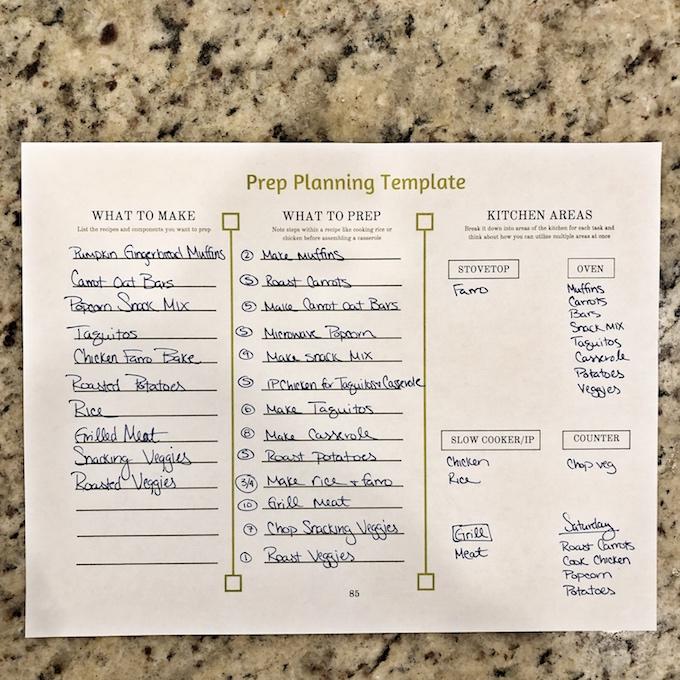 Prep Planning Template
WHAT TO MAKE
List the recipes and components you want to prep
Pumpkin Gingerbread Muffins
Carrot Oat Bars
Popcorn Snack Mix
Taquitos
Chicken Farro Bake
Roasted Potatoes
Rice
Grilled Meat
Snacking Veggies
Roasted Veggies
WHAT TO PREP
Note steps within a recipe like cooking rice or
chicken before assembling a casserole
2 Make Muffins
S Roast Carrots
5 Make Carrot Oat Bars
S Microwave Popcorn
4 Make snack Mix
S IP Chicken for Taquitos + Casserole
6 Make Taquitos
8 Make Casserole
S Roast Potatoes
3/4 Make rice + farro
10 Grill Meat
7 Chop Snacking Veggies
1 Roast Veggies
85
KITCHEN AREAS
Break it down into areas of the kitchen for each task and
think about how you can utilize multiple areas at once
STOVETOP
Farro
OVEN
Muffins
Carrots
Bars
Snack Mix
Taquitos
Casserole
Potatoes
Veggies
SLOW COOKER/IP
Chicken
Rice
COUNTER
Chop veg
Grill
Meat
Saturday
Roast Carrots
Cook Chicken
Popcorn
Potatoes